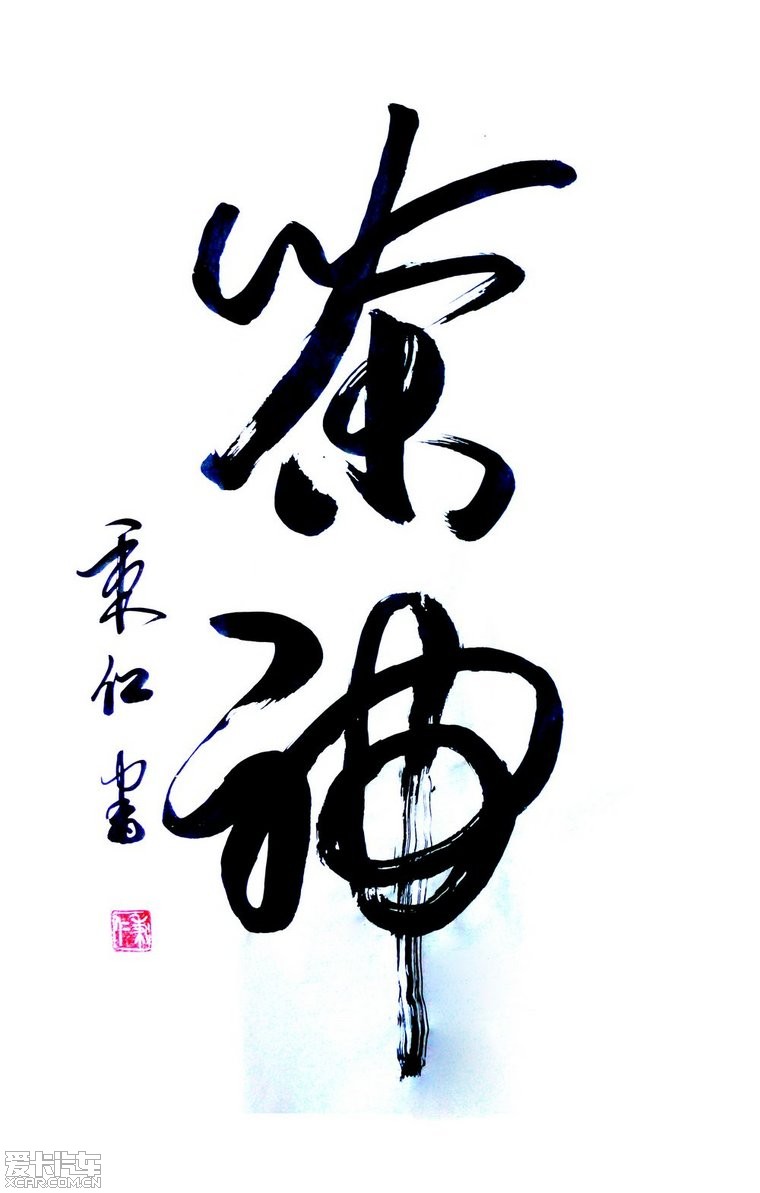 茶神
秉仁书
秉仁
爱卡汽车
XCAR.COM.CN